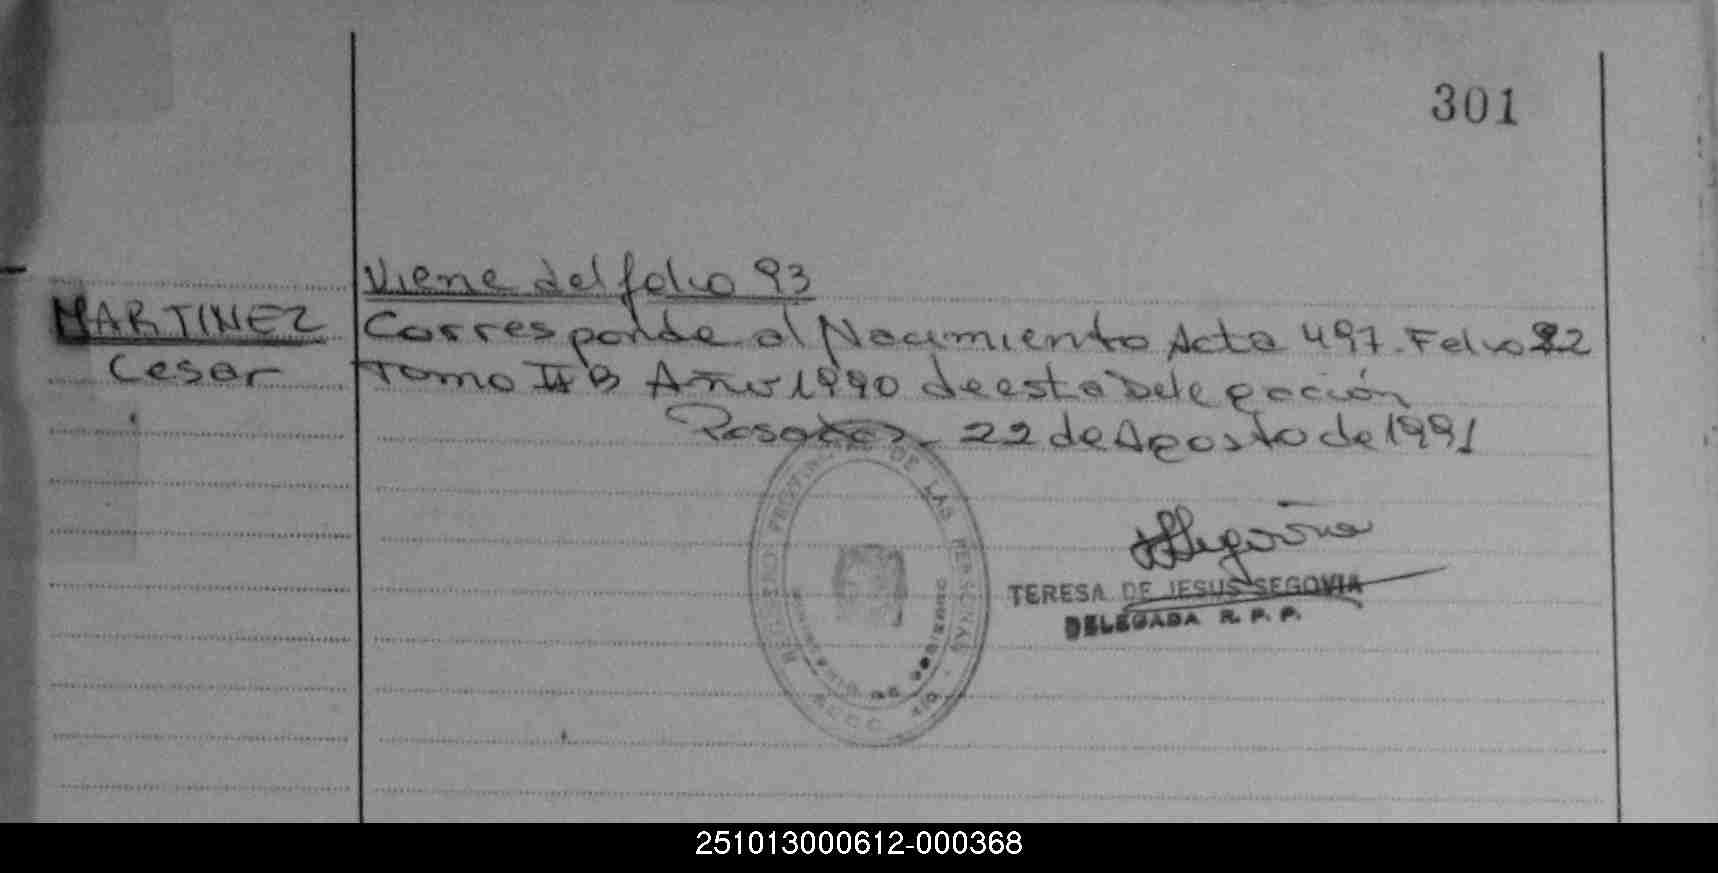 301
Viene del folio 93
MARTINEZ
Cesar
Corresponde al Nacimiento Acta 497. Folio 22
Tomo II B Año 1990 de esta Delegación
22 de Agosto de 1991
REGISTRO PROVINCIAL DE LAS PERSONAS
MINISTERIO DE GOBIERNO
TERESA DE JESUS SEGOVIA
DELEGADA R. P. P.
251013000612-000368